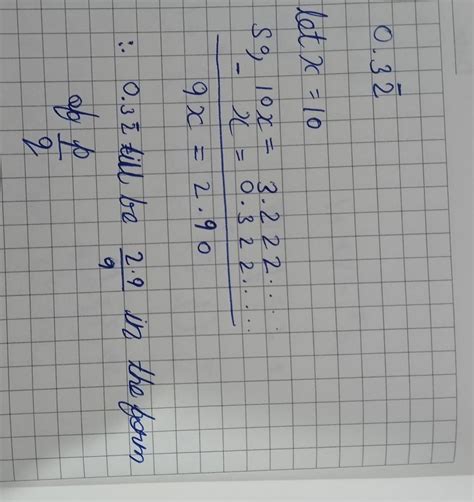 0.32̅
let x = 10
So, 10x = 3.222.....
- x = 0.322......
9x = 2.90
∴ 0.32̅ till be 2.9/9 in the form
of p/q